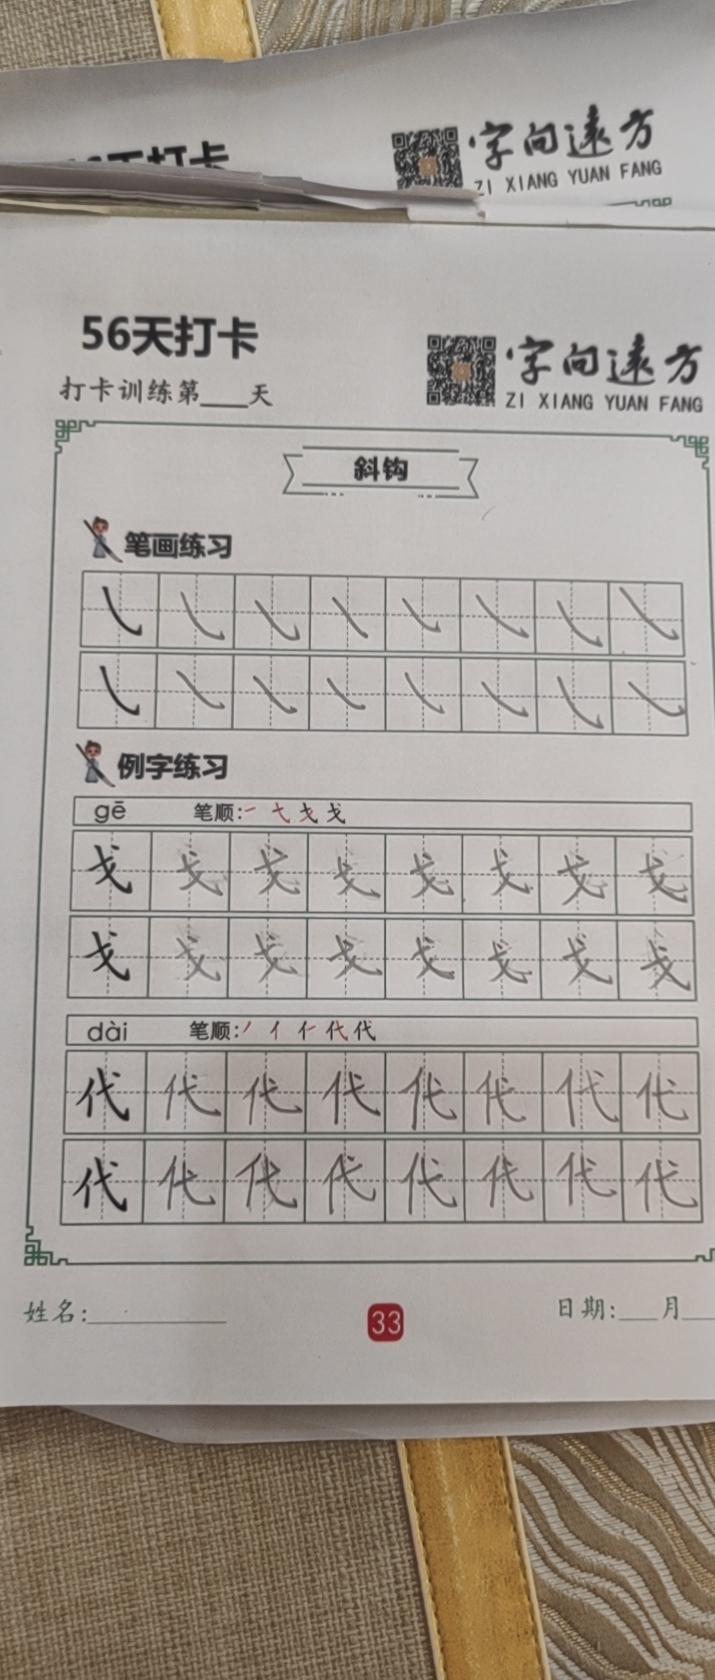 字向远方
ZI XIANG YUAN FANG
56天打卡
打卡训练第___天
字向远方
ZI XIANG YUAN FANG
斜钩
笔画练习
例字练习
gē 笔顺:
戈 戈 戈 戈 戈 戈 戈 戈
戈 戈 戈 戈 戈 戈 戈 戈
dài 笔顺:
代 代 代 代 代 代 代 代
代 代 代 代 代 代 代 代
姓名:
33
日期:___月